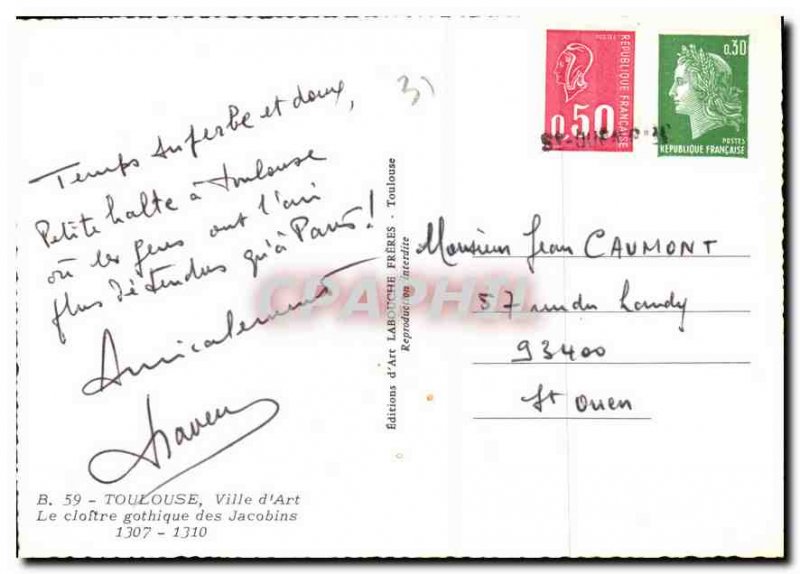 Temps superbe et doux,
Petite halte à Toulouse
où les gens ont l'air
plus détendus qu'à Paris!
Amicalement
B. 59 - TOULOUSE, Ville d'Art
Le cloître gothique des Jacobins
1307 - 1310
Éditions d'Art LABOUCHE FRÈRES - Toulouse
Reproduction interdite
3)
POSTES
RÉPUBLIQUE FRANÇAISE
0,50
0,30
POSTES
RÉPUBLIQUE FRANÇAISE
Monsieur Jean CAUMONT
57 rue du Landy
93400
St Ouen
CPAPHIL